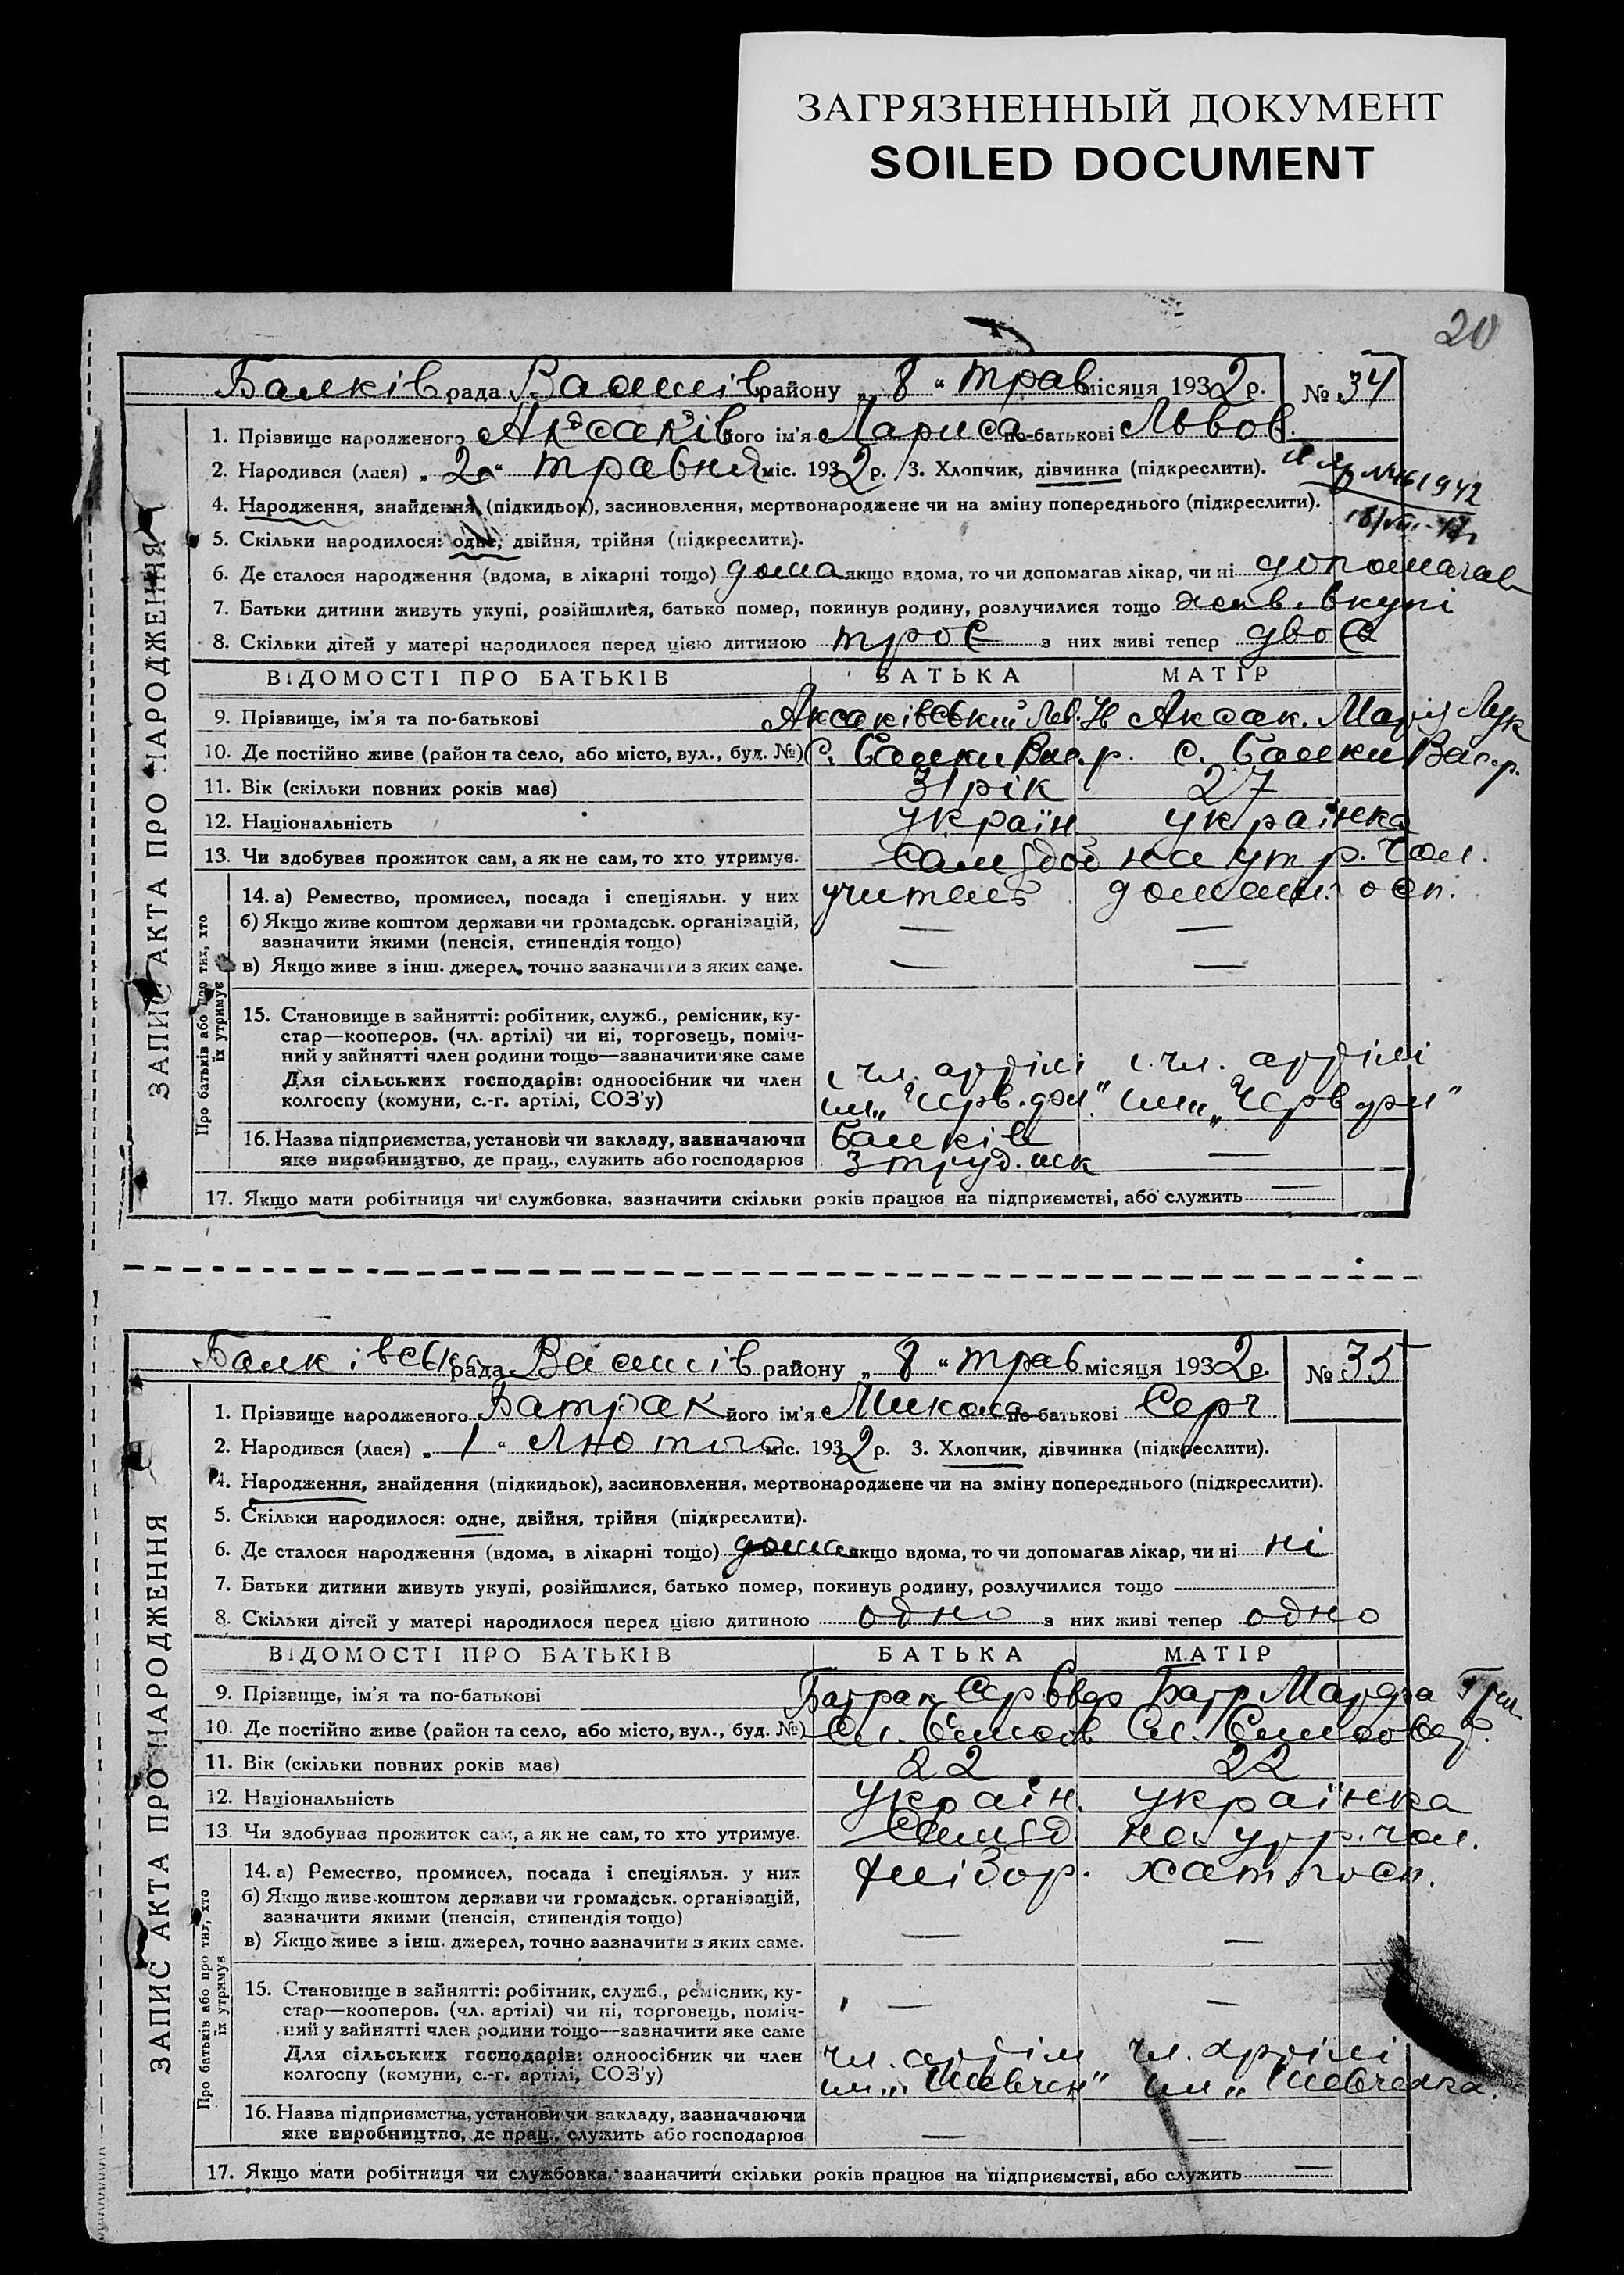 ЗАГРЯЗНЕННЫЙ ДОКУМЕНТ
SOILED DOCUMENT
20
Балків рада Васили́в району „ 8 “ трав місяця 1932 р. № 34
1. Прізвище народженого Аксаків його ім'я Лариса по-батькові Львов.
2. Народився (лася) „ 2 “ травня міс. 1932 р. 3. Хлопчик, дівчинка (підкреслити).
4. Народження, знайдення (підкидьок), засиновлення, мертвонароджене чи на зміну попереднього (підкреслити).
5. Скільки народилося: одне, двійня, трійня (підкреслити).
6. Де сталося народження (вдома, в лікарні тощо) дома якщо вдома, то чи допомагав лікар, чи ні допомагав
7. Батьки дитини живуть укупі, розійшлися, батько помер, покинув родину, розлучилися тощо жив. вкупі
8. Скільки дітей у матері народилося перед цією дитиною троє з них живі тепер двоє
ВІДОМОСТІ ПРО БАТЬКІВ БАТЬКА МАТІР
9. Прізвище, ім'я та по-батькові Аксаківський Лев. Н Аксак. Марія Лук
10. Де постійно живе (район та село, або місто, вул., буд. №) С. Балки Вас.р. с. Балки Вас.р.
11. Вік (скільки повних років має) 31 рік 27
12. Національність україн. українка
13. Чи здобуває прожиток сам, а як не сам, то хто утримує. Сам здоб на утр. чол.
14. а) Ремество, промисел, посада і спеціяльн. у них учитель домашн. госп.
б) Якщо живе коштом держави чи громадськ. організацій, — —
зазначити якими (пенсія, стипендія тощо)
в) Якщо живе з інш. джерел, точно зазначити з яких саме. — —
15. Становище в зайнятті: робітник, служб., ремісник, ку-
стар—кооперов. (чл. артілі) чи ні, торговець, поміч-
ний у зайнятті член родини тощо—зазначити яке саме
Для сільських господарів: одноосібник чи член чл. артілі чл. артілі
колгоспу (комуни, с.-г. артілі, СОЗ'у)
16. Назва підприємства, установи чи закладу, зазначаючи Балків
яке виробництво, де прац., служить або господарює 3 труд. шк —
17. Якщо мати робітниця чи службовка, зазначити скільки років працює на підприємстві, або служить —
ЗАПИС АКТА ПРО НАРОДЖЕННЯ
Про батьків або про тих, хто їх утримує
Балківська рада Василів району „ 8 “ трав місяця 1932 р. № 35
1. Прізвище народженого Батрак його ім'я Микола по-батькові Серг.
2. Народився (лася) „ 1 “ Лютого міс. 1932 р. 3. Хлопчик, дівчинка (підкреслити).
4. Народження, знайдення (підкидьок), засиновлення, мертвонароджене чи на зміну попереднього (підкреслити).
5. Скільки народилося: одне, двійня, трійня (підкреслити).
6. Де сталося народження (вдома, в лікарні тощо) дома якщо вдома, то чи допомагав лікар, чи ні ні
7. Батьки дитини живуть укупі, розійшлися, батько помер, покинув родину, розлучилися тощо
8. Скільки дітей у матері народилося перед цією дитиною одно з них живі тепер одно
ВІДОМОСТІ ПРО БАТЬКІВ БАТЬКА МАТІР
9. Прізвище, ім'я та по-батькові Батрак Сер Батр Марфа
10. Де постійно живе (район та село, або місто, вул., буд. №)
11. Вік (скільки повних років має) 22 22
12. Національність україн. українка
13. Чи здобуває прожиток сам, а як не сам, то хто утримує. Сам зд. на утр. чол.
14. а) Ремество, промисел, посада і спеціяльн. у них хатн. госп.
б) Якщо живе коштом держави чи громадськ. організацій,
зазначити якими (пенсія, стипендія тощо)
в) Якщо живе з інш. джерел, точно зазначити з яких саме. — —
15. Становище в зайнятті: робітник, служб., ремісник, ку-
стар—кооперов. (чл. артілі) чи ні, торговець, поміч- — —
ний у зайнятті член родини тощо—зазначити яке саме
Для сільських господарів: одноосібник чи член чл. артілі чл. артілі
колгоспу (комуни, с.-г. артілі, СОЗ'у) им „Шевчен“ им „Шевченка.
16. Назва підприємства, установи чи закладу, зазначаючи
яке виробництво, де прац., служить або господарює — —
17. Якщо мати робітниця чи службовка, зазначити скільки років працює на підприємстві, або служить —
ЗАПИС АКТА ПРО НАРОДЖЕННЯ
Про батьків або про тих, хто їх утримує